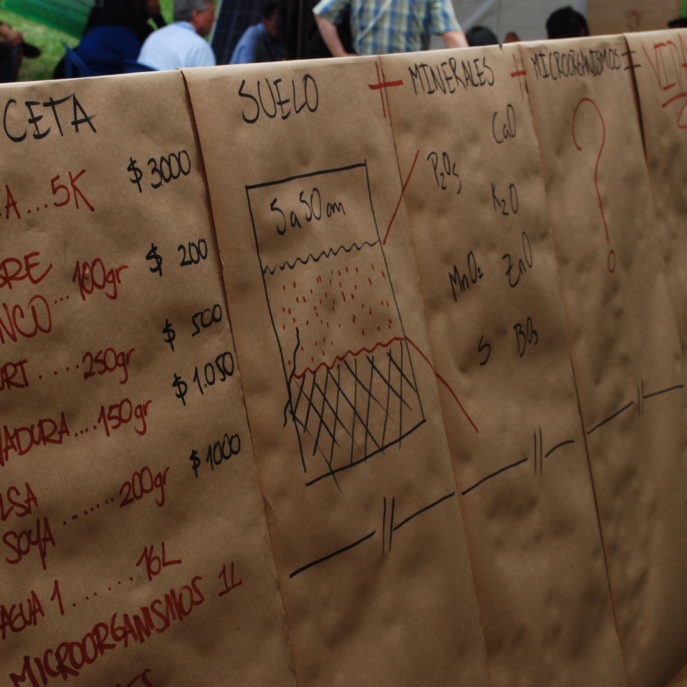 CETA
A...5K $3000
BRE
NCO...100gr $200
URT.....250gr $500
NADURA....150gr $1.050
LSA
SOYA.......200gr $1000
AGUA 1.......16L
MICROORGANISMOS 1L
SUELO
5 a 50 cm
+
MINERALES
CaO
P₂O₅
K₂O
MnO₂ ZnO
S BO₃
+
MICROORGANISMOS
?
=
VIDA